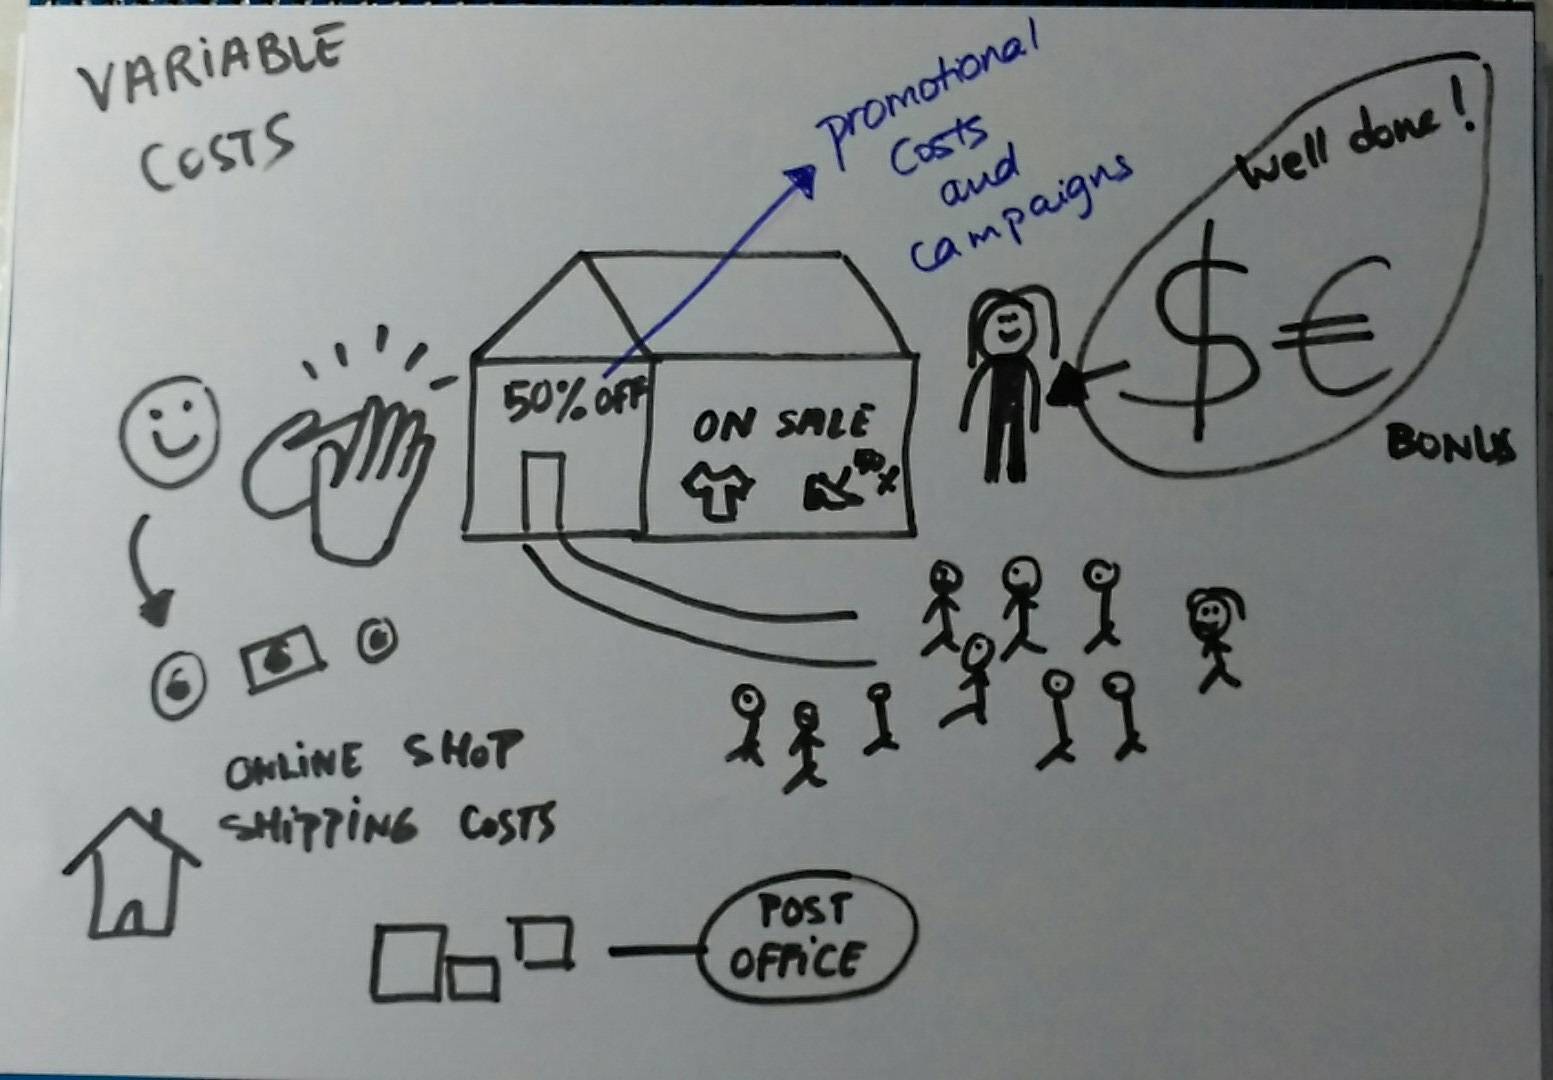 VARiABLE
COSTS
promotional
Costs
and
campaigns
Well done!
$ €
BONUS
50% OFF
ON SALE
ONLiNE SHOP
SHiPPiNG COSTS
POST
OFFiCE